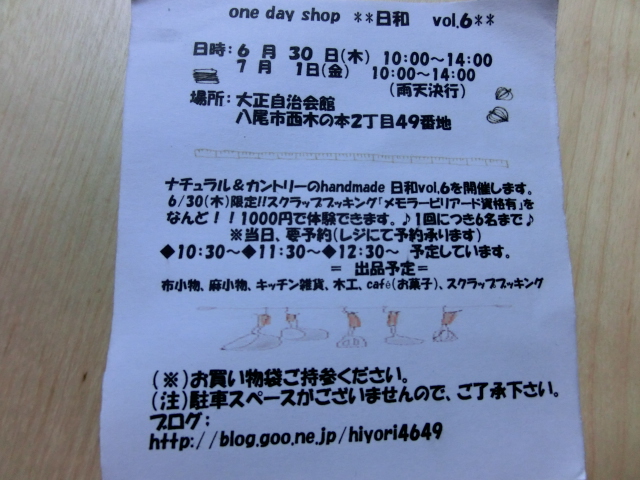 one day shop **日和 vol.6**
日時：6月30日(木) 10:00～14:00
7月 1日(金) 10:00～14:00
(雨天決行)
場所：大正自治会館
八尾市西木の本2丁目49番地
ナチュラル＆カントリーのhandmade 日和vol.6を開催します。
6/30(木)限定!!スクラップブッキング「メモラービリアード資格有」を
なんど！！1000円で体験できます。♪1回につき6名まで♪
※当日、要予約(レジにて予約承ります)
◆10:30～◆11:30～◆12:30～ 予定しています。
＝ 出品予定＝
布小物、麻小物、キッチン雑貨、木工、café(お菓子)、スクラップブッキング
(※)お買い物袋ご持参ください。
(注)駐車スペースがございませんので、ご了承下さい。
ブログ：
http://blog.goo.ne.jp/hiyori4649